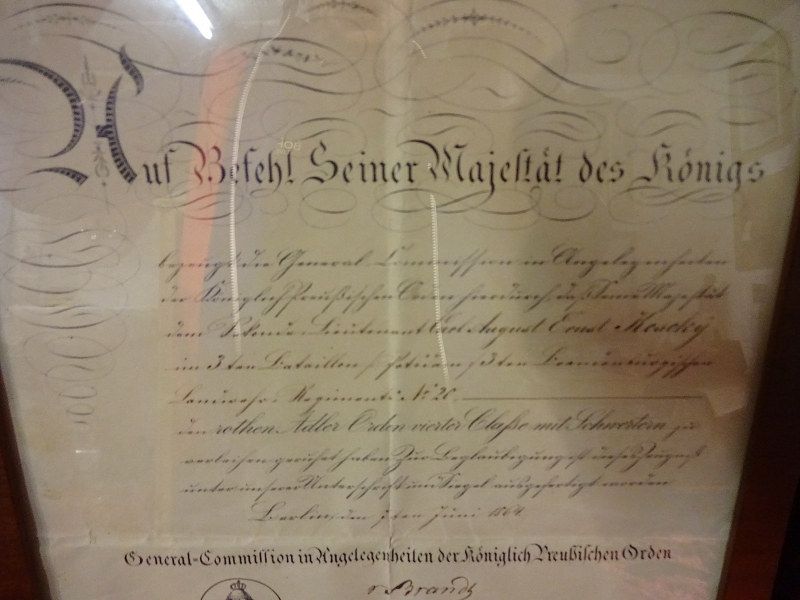 Auf Befehl Seiner Majestät des Königs
bezeugt die General-Commission in Angelegenheiten
der Königlich Preußischen Orden hierdurch, daß Seine Majestät
dem Sekonde-Lieutenant Carl August Ernst
im 3ten Bataillon 3ten Brandenburgischen
Landwehr-Regiments No 20.
den rothen Adler Orden vierter Claße mit Schwertern zu
verleihen geruhet haben. Zur Beglaubigung ist dieses Zeugniß
unter unserer Unterschrift und Siegel ausgefertigt worden
Berlin, den 7ten Juni 1864.
General-Commission in Angelegenheiten der Königlich Preußischen Orden
v Brandt